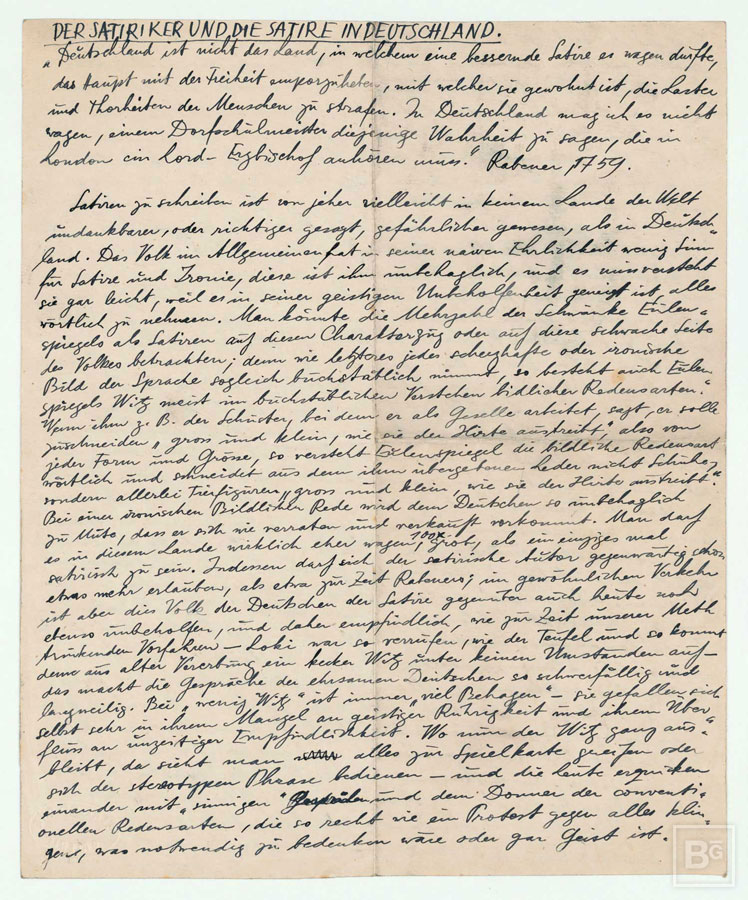 DER SATIRIKER UND DIE SATIRE IN DEUTSCHLAND.
„Deutschland ist nicht das Land, in welchem eine bessernde Satire es wagen dürfte,
das Haupt mit der Freiheit emporzuheben, mit welcher sie gewohnt ist, die Laster
und Thorheiten der Menschen zu strafen. In Deutschland mag ich es nicht
wagen, einem Dorfschulmeister diejenige Wahrheit zu sagen, die in
London ein Lord-Erzbischof anhören muss." Rabener 1759.
Satiren zu schreiben ist von jeher vielleicht in keinem Lande der Welt
undankbarer, oder richtiger gesagt, gefährlicher gewesen, als in Deutsch-
land. Das Volk im Allgemeinen hat in seiner naiven Ehrlichkeit wenig Sinn
für Satire und Ironie, diese ist ihm unbehaglich, und es missversteht
sie gar leicht, weil es in seiner geistigen Unbeholfenheit geneigt ist, alles
wörtlich zu nehmen. Man könnte die Mehrzahl der Schwänke Eulen-
spiegels als Satiren auf diesen Charakterzug oder auf diese schwache Seite
des Volkes betrachten; denn wie letzteres jedes scherzhafte oder ironische
Bild der Sprache sogleich buchstäblich nimmt, so besteht auch Eulen-
spiegels Witz meist im buchstäblichen Verstehen bidlicher Redensarten.
Wenn ihm z. B. der Schuster, bei dem er als Geselle arbeitet, sagt, er solle
zuschneiden „gross und klein, wie sie der Hirte austreibt" also von
jeder Form und Grösse, so versteht Eulenspiegel die bildliche Redensart
wörtlich und schneidet aus dem ihm übergebenen Leder nicht Schuhe,
sondern allerlei Tierfiguren „gross und klein, wie sie der Hirte austreibt".
Bei einer ironischen Bildlichen Rede wird dem Deutschen so unbehaglich
zu Mute, dass er sich wie verraten und verkauft vorkommt. Man darf
es in diesem Lande wirklich eher wagen, 100x grob, als ein einziges mal
satirisch zu sein. Indessen darf sich der satirische Autor gegenwärtig schon
etwas mehr erlauben, als etwa zur Zeit Rabeners; im gewöhnlichen Verkehr
ist aber dies Volk der Deutschen der Satire gegenüber auch heute noch
ebenso unbeholfen, und daher empfindlich, wie zur Zeit unserer Meth
trinkenden Vorfahren – Loki war so verrufen, wie der Teufel und so kommt
denn aus alter Vererbung ein kecker Witz unter keinen Umständen auf –
das macht die Gespräche der ehrsamen Deutschen so schwerfällig und
langweilig. Bei „wenig Witz" ist immer „viel Behagen" – sie gefallen sich
selbst sehr in ihrem Mangel an geistiger Rührigkeit und ihrem Über-
fluss an unzeitiger Empfindlichkeit. Wo nun der Witz ganz aus-
bleibt, da sieht man alles zur Spielkarte greifen oder
sich der stereotypen Phrase bedienen – und die Leute erquicken
einander mit „sinnigen" und dem Donner der conventi-
onellen Redensarten, die so recht wie ein Protest gegen alles klin-
gen, was notwendig zu bedenken wäre oder gar Geist ist.
BG